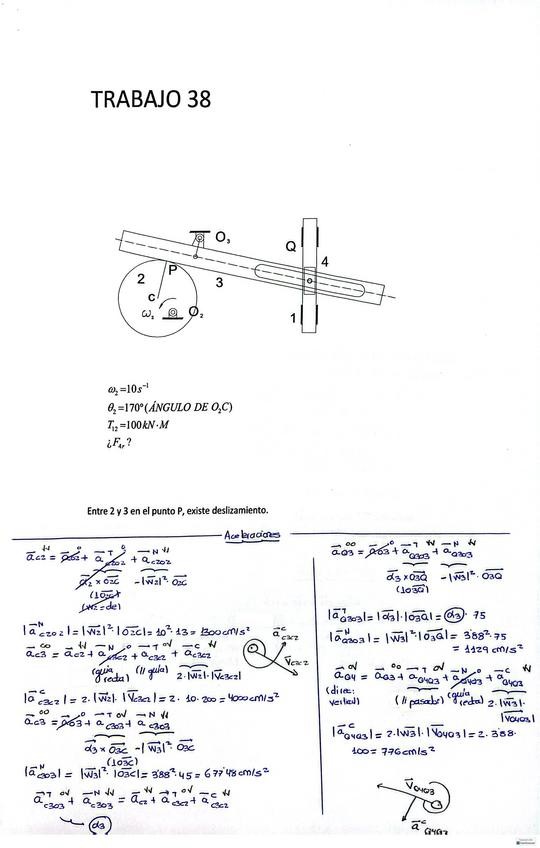 TRABAJO 38
O₃
Q
4
P
2
3
C
ω₂
O₂
1
ω₂=10s⁻¹
θ₂=170º(ÁNGULO DE O₂C)
T₁₂=100kN·M
¿F₄ᵣ?
Entre 2 y 3 en el punto P, existe deslizamiento.
Aceleraciones
a̅c2 = a̅o2 + a̅ᵀc2o2 + a̅ᴺc2o2
α̅2 x o̅2c -|w̅2|²·o̅2c
(⊥o̅2c)
(w2=cte)
|a̅ᴺc2o2| = |w̅2|²·|o̅2c| = 10²·13 = 1300 cm/s²
a̅c3 = a̅c2 + a̅ᴺc3c2 + a̅ᵀc3c2 + a̅ᶜc3c2
(guía recta) (// guía) 2·|w̅2|·|V̅c3c2|
a̅ᶜc3c2
V̅c3c2
|a̅ᶜc3c2| = 2·|w̅2|·|V̅c3c2| = 2·10·200 = 4000 cm/s²
a̅c3 = a̅o3 + a̅ᵀc3o3 + a̅ᴺc3o3
α̅3 x o̅3c -|w̅3|²·o̅3c
(⊥o̅3c)
|a̅ᴺc3o3| = |w̅3|²·|o̅3c| = 3'88²·45 = 677'48 cm/s²
a̅ᵀc3o3 + a̅ᴺc3o3 = a̅c2 + a̅ᵀc3c2 + a̅ᶜc3c2
α3
a̅Q3 = a̅o3 + a̅ᵀQ3o3 + a̅ᴺQ3o3
α̅3 x o̅3Q -|w̅3|²·o̅3Q
(⊥o̅3Q)
|a̅ᵀQ3o3| = |α̅3|·|o̅3Q| = α3·75
|a̅ᴺQ3o3| = |w̅3|²·|o̅3Q| = 3'88²·75
= 1129 cm/s²
a̅Q4 = a̅Q3 + a̅ᵀQ4Q3 + a̅ᴺQ4Q3 + a̅ᶜQ4Q3
(direc. vertical) (// pasador) (guía recta) 2·|w̅3|·|V̅Q4Q3|
|a̅ᶜQ4Q3| = 2·|w̅3|·|V̅Q4Q3| = 2·3'88·
100 = 776 cm/s²
V̅Q4Q3
a̅ᶜQ4Q3